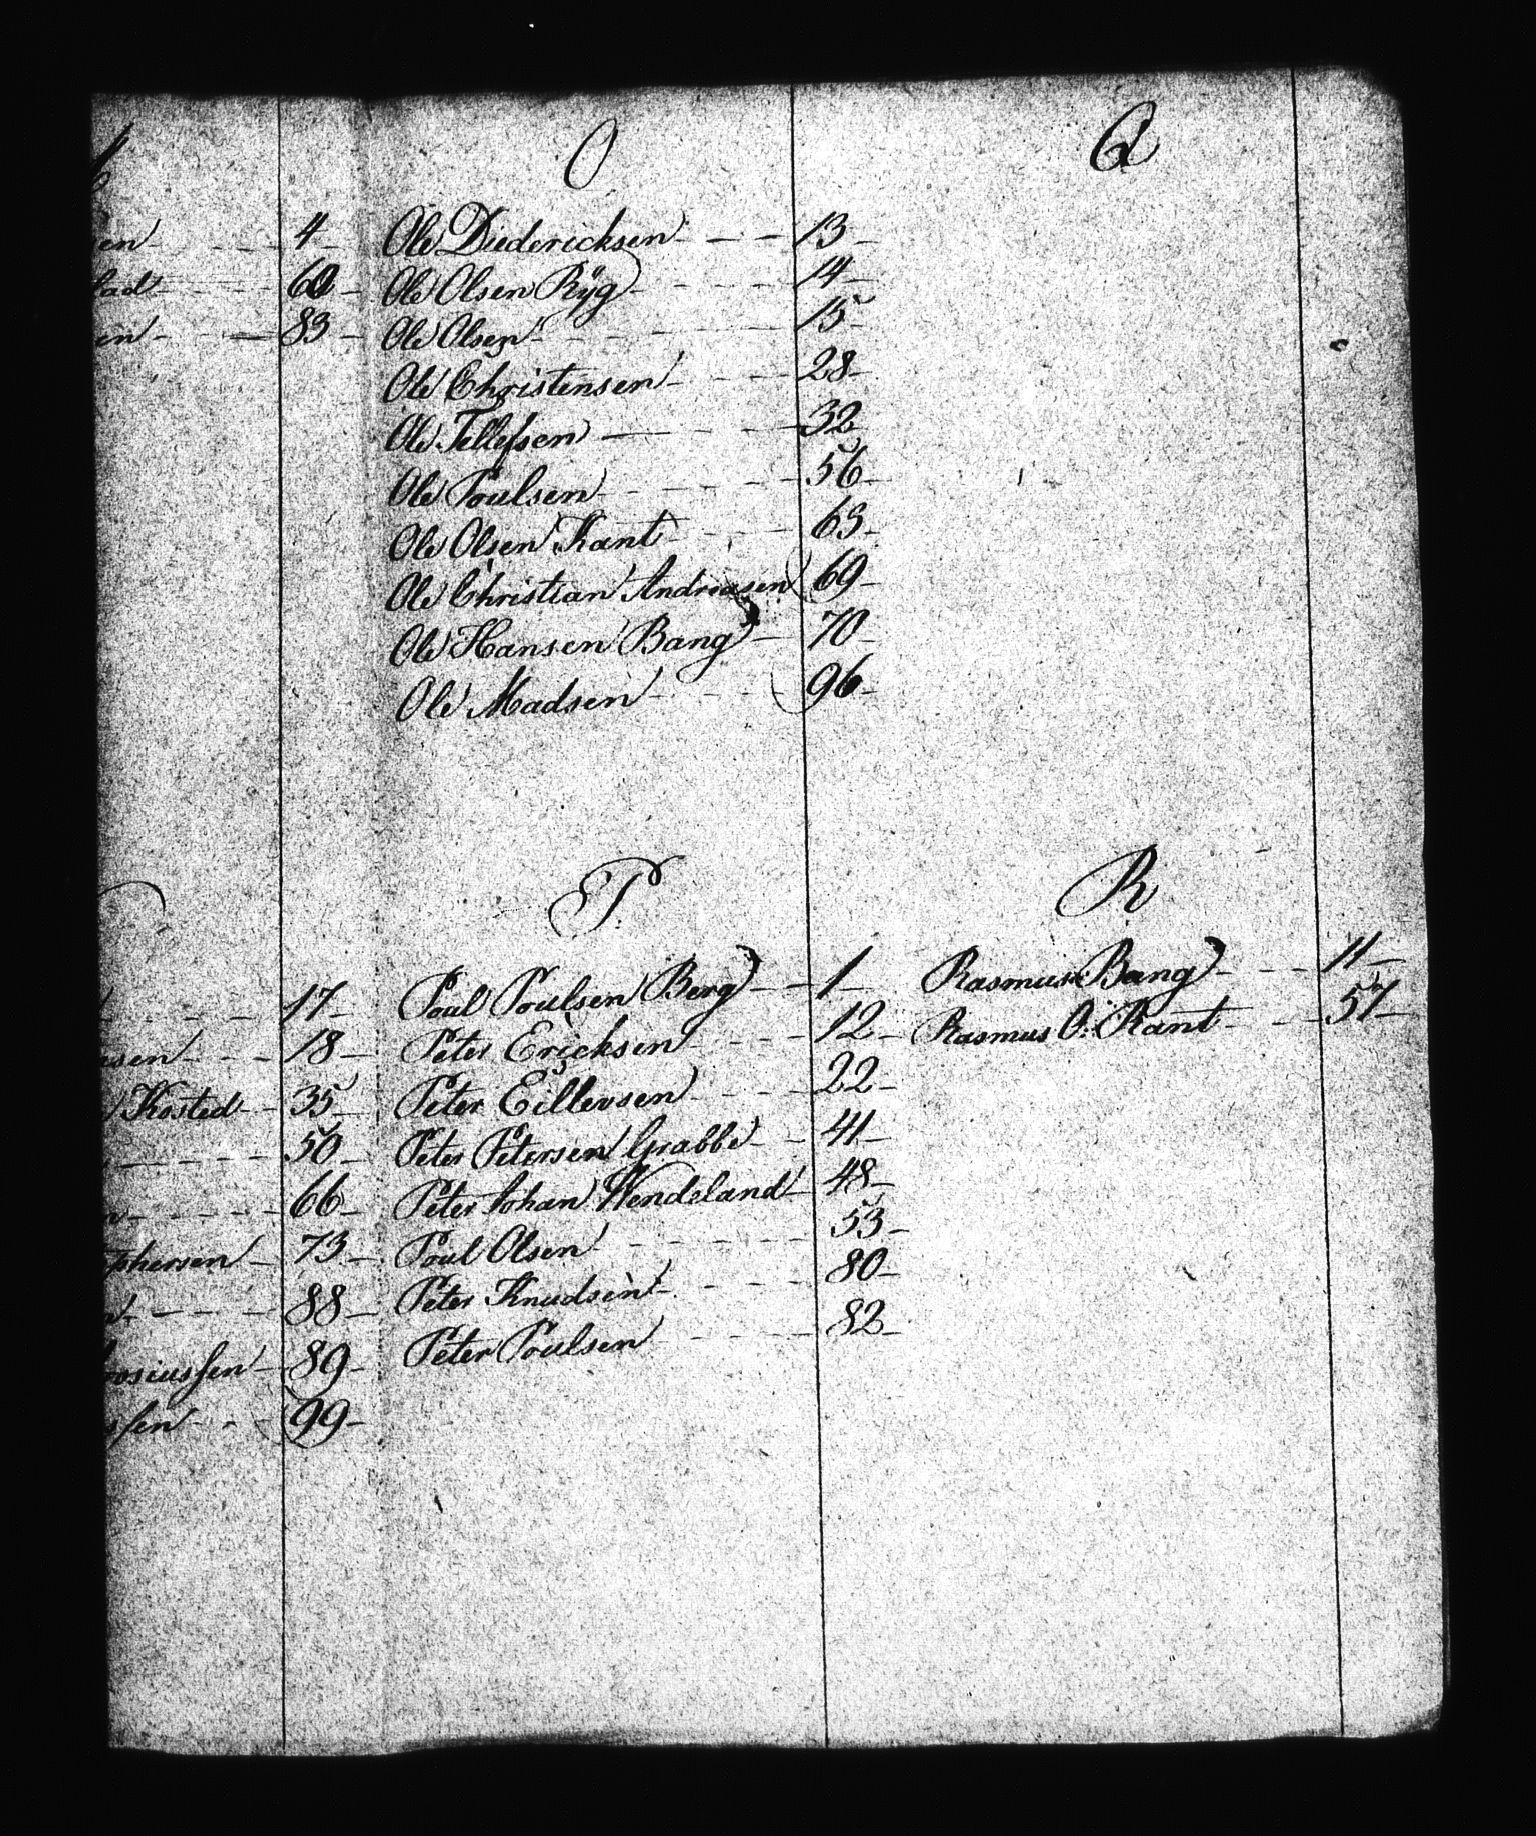 4
60
83
O
Ole Diedericksen 13
Ole Olsen Ryg 14
Ole Olsen 15
Ole Christensen 28
Ole Tellefsen 32
Ole Poulsen 56
Ole Olsen Kant 63
Ole Christian Andreasen 69
Ole Hansen Bang 70
Ole Madsen 96
Q
17
18
Kosted 35
50
66
phersen 73
88
osiussen 89
ssen 99
P
Poul Poulsen Berg 1
Peter Ericksen 12
Peter Eillevsen 22
Peter Petersen Grabbe 41
Peter Johan Wendeland 48
Poul Olsen 53
Peter Knudsen 80
Peter Poulsen 82
R
Rasmus Bang 11
Rasmus O: Kant 57